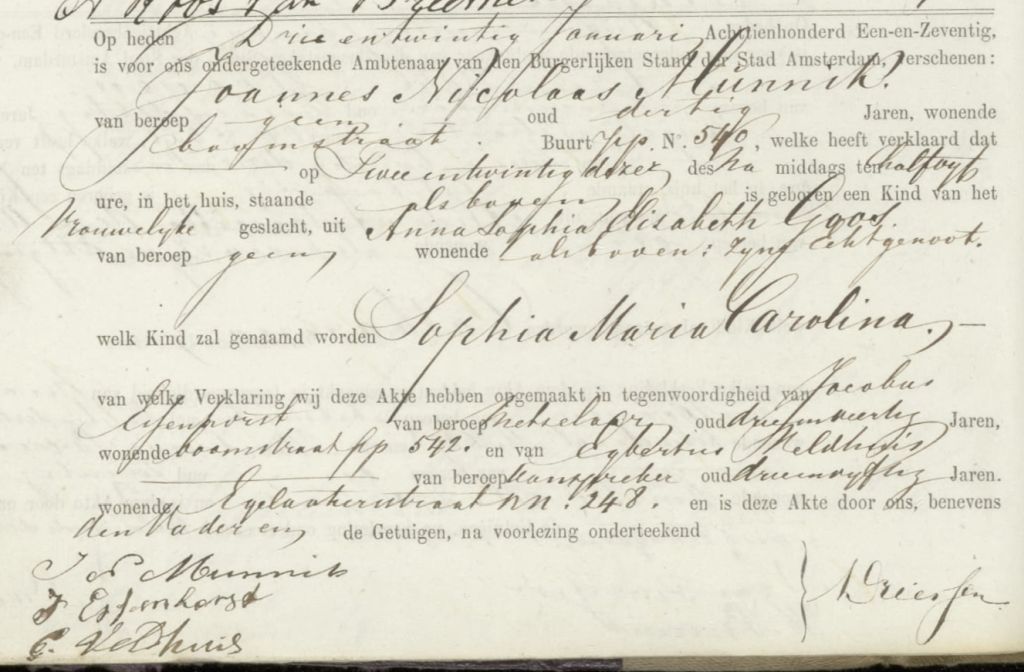 Op heden Drie entwintig Januari Achttienhonderd Een-en-Zeventig,
is voor ons ondergeteekende Ambtenaar van den Burgerlijken Stand der Stad Amsterdam, verschenen:
Joannes Nicolaas Munnik.
van beroep geen oud dertig Jaren, wonende
boomstraat. Buurt pp. No. 540, welke heeft verklaard dat
op Twee entwintig dezer des Na middags ten half
ure, in het huis, staande als boven is geboren een Kind van het
Vrouwelyke geslacht, uit Anna Sophia Elisabeth Goos
van beroep geen wonende als boven: zyne Echtgenoot.
welk Kind zal genaamd worden Sophia Maria Carolina.
van welke Verklaring wij deze Akte hebben opgemaakt in tegenwoordigheid van Jacobus
Essenhorst van beroep Metselaar oud drie en veertig Jaren,
wonende boomstraat pp 542. en van Egbertus Veldhuis
van beroep oud drie en vyftig Jaren.
wonende Egelantierstraat NN. 248. en is deze Akte door ons, benevens
den Vader en de Getuigen, na voorlezing onderteekend
J N Munnik
J Essenhorst
E. Veldhuis